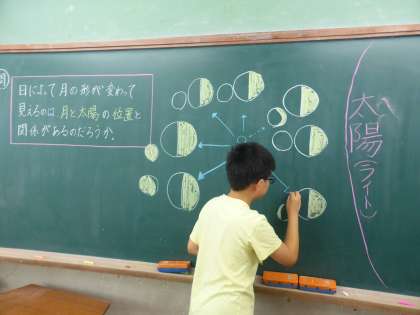 問
日によって月の形が変わって
見えるのは月と太陽の位置と
関係があるのだろうか。
太陽(ライト)